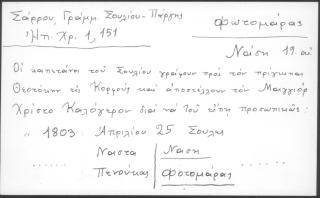 Σάρρου, Γράμμ. Σουλίου-Πάργης
Ἠπ. Χρ. 1, 151
Φωτομάρας
Νάση 19. αἰ
Οἱ καπετάνοι τοῦ Σουλίου γράφουν πρὸς τὸν πρίγκιπα
Θεοτόκην εἰς Κορφοὺς καὶ ἀποστέλλουν τὸν Μαγγιὸρ
Χρίστο Καλόγερον διὰ νὰ τοῦ εἴπῃ προσωπικῶς:
" 1803 Ἀπριλίου 25 Σουλι
....... Νάστα Νάση ......
Πανούκας Φοτομάρας